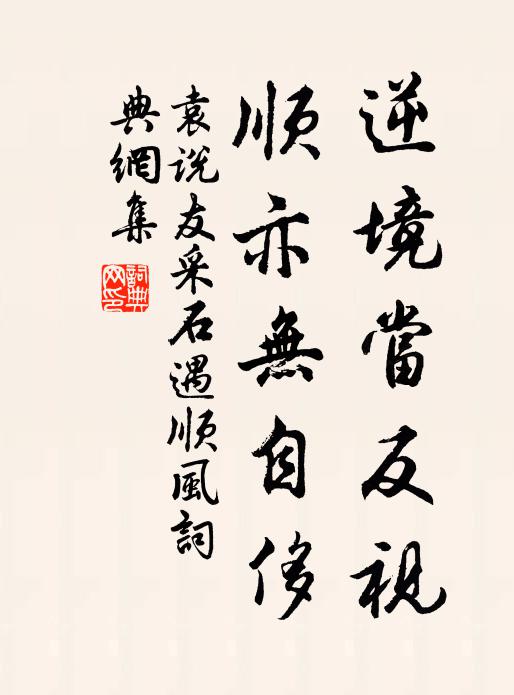 逆境當反視
順亦無自侈
袁説友采石遇順風詞
典網集
詞典網印